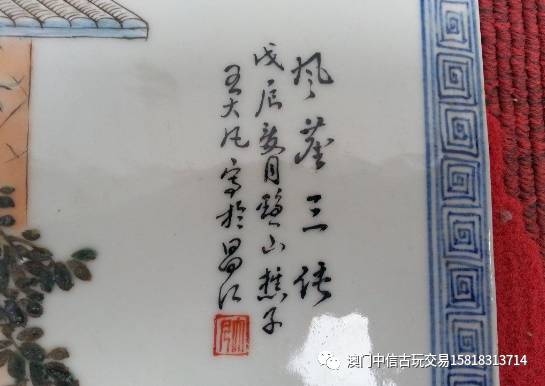 风尘三侠
戊辰夏月黟山樵子
王大凡写於昌江
澳门中信古玩交易15818313714